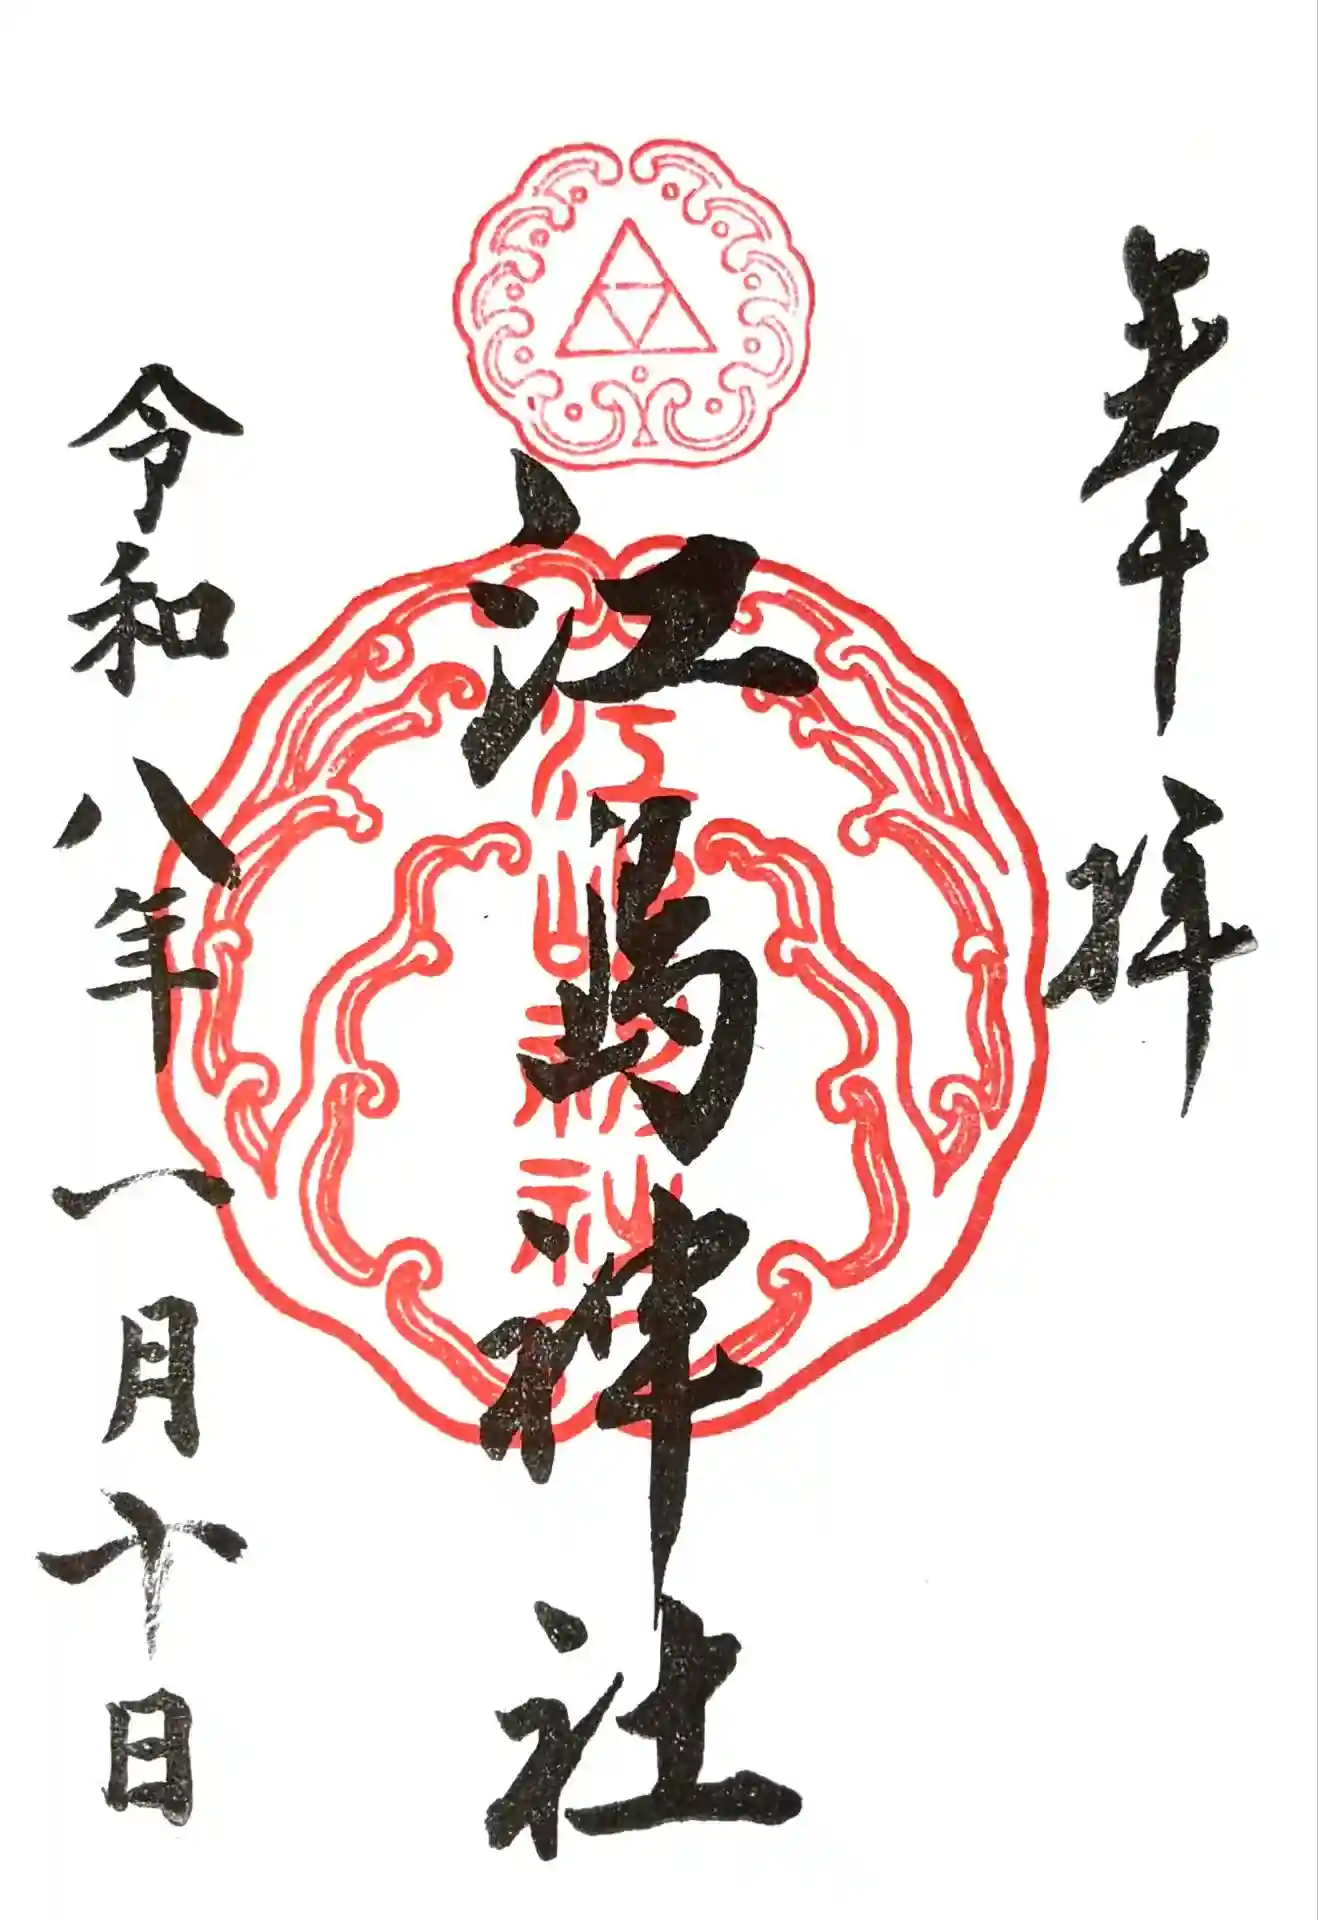 奉拝
江島神社
江島神社
令和八年一月十日